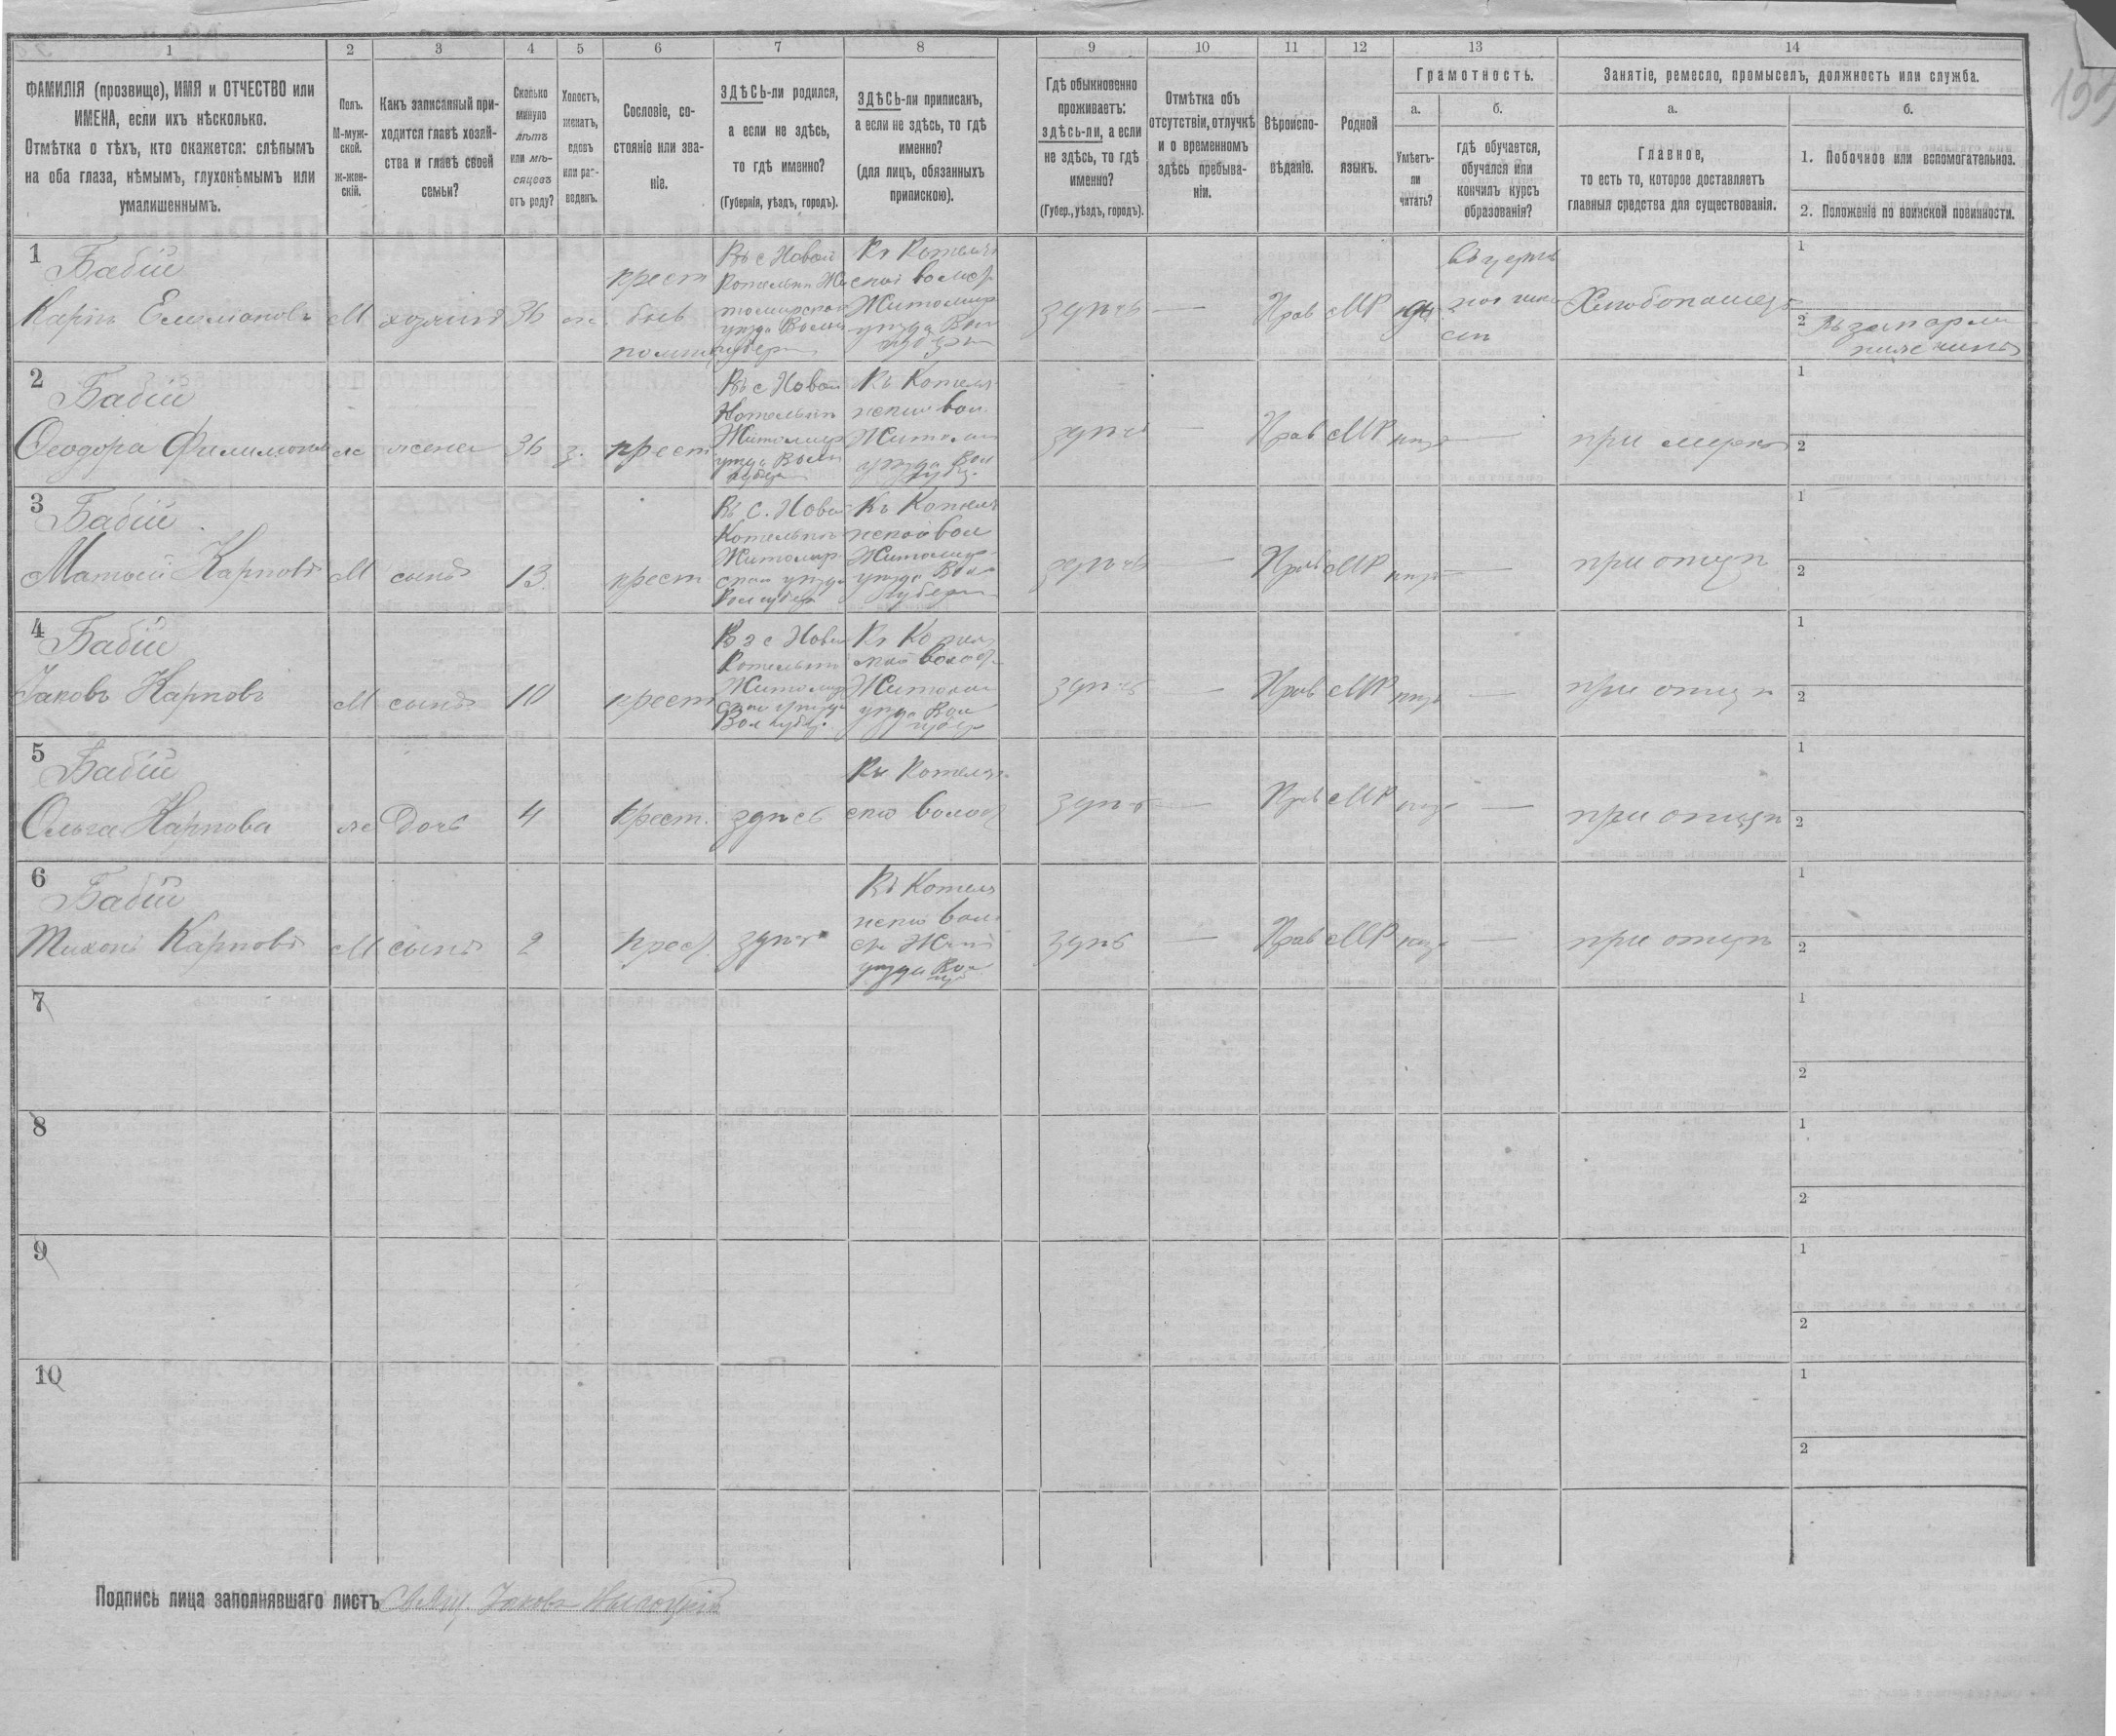 1 2 3 4 5 6 7 8 9 10 11 12 13 14
ФАМИЛІЯ (прозвище), ИМЯ и ОТЧЕСТВО или
ИМЕНА, если ихъ нѣсколько.
Отмѣтка о тѣхъ, кто окажется: слѣпымъ
на оба глаза, нѣмымъ, глухонѣмымъ или
умалишеннымъ.
Полъ.
М-муж-
ской.
Ж-жен-
скій.
Какъ записанный при-
ходится главѣ хозяй-
ства и главѣ своей
семьи?
Сколько
минуло
лѣтъ
или мѣ-
сяцевъ
отъ роду?
Холостъ,
женатъ,
вдовъ
или раз-
веденъ.
Сословіе, со-
стояніе или зва-
ніе.
ЗДѢСЬ-ли родился,
а если не здѣсь,
то гдѣ именно?
(Губернія, уѣздъ, городъ).
ЗДѢСЬ-ли приписанъ,
а если не здѣсь, то гдѣ
именно?
(для лицъ, обязанныхъ
припискою).
Гдѣ обыкновенно
проживаетъ:
здѣсь-ли, а если
не здѣсь, то гдѣ
именно?
(Губер., уѣздъ, городъ).
Отмѣтка объ
отсутствіи, отлучкѣ
и о временномъ
здѣсь пребыва-
ніи.
Вѣроиспо-
вѣданіе.
Родной
языкъ.
Грамотность.
а.
Умѣетъ-
ли
читать?
б.
гдѣ обучается,
обучался или
кончилъ курсъ
образованія?
Занятіе, ремесло, промыселъ, должность или служба.
а.
Главное,
то есть то, которое доставляетъ
главныя средства для существованія.
б.
1. Побочное или вспомогательное.
2. Положеніе по воинской повинности.
1
Бабій
Карпъ Емеліановъ
М хозяинъ 36 ж.
крест
бывъ
Въ с Новой
Котельни Жи
томирскаго
уѣзда Волын
губерн
Къ Котельн
ской волост
Житомир
уѣзда Волын
здѣсь — Прав МР
Хлѣбопашецъ
1
2
2
Бабій
Ѳеодора Филимонова
ж жена 36 з. крест
Въ с Новой
Котельни
Житомир
уѣзда Волын
губерн
Къ Котель
нской вол
Житом
уѣзда Вол
губ.
здѣсь — Прав МР — при мужѣ
1
2
3
Бабій
Матѳей Карповъ
М сынъ 13 крест
Въ с. Новой
Котельни
Житомир
скаго уѣзда
Вол губер
Къ Котель
нской вол
Житомир
уѣзда Вол
губерн
здѣсь — Прав МР — при отцѣ
1
2
4
Бабій
Іаковъ Карповъ
М сынъ 10 крест
Въ с Новой
Котельни
Житомир
скаго уѣзда
Вол губ.
Къ Котель
ской волост
Житом
уѣзда Вол
губер
здѣсь — Прав МР — при отцѣ
1
2
5
Бабій
Ольга Карпова
ж Дочь 4 Крест. здѣсь
Къ Котельн
ской волост
здѣсь — Прав МР — при отцѣ
1
2
6
Бабій
Тихонъ Карповъ
М сынъ 2 крест. здѣсь
Къ Котель
нской вол
уѣзда Вол
губ
здѣсь — Прав МР — при отцѣ
1
2
7
1
2
8
1
2
9
1
2
10
1
2
Подпись лица заполнявшаго листъ